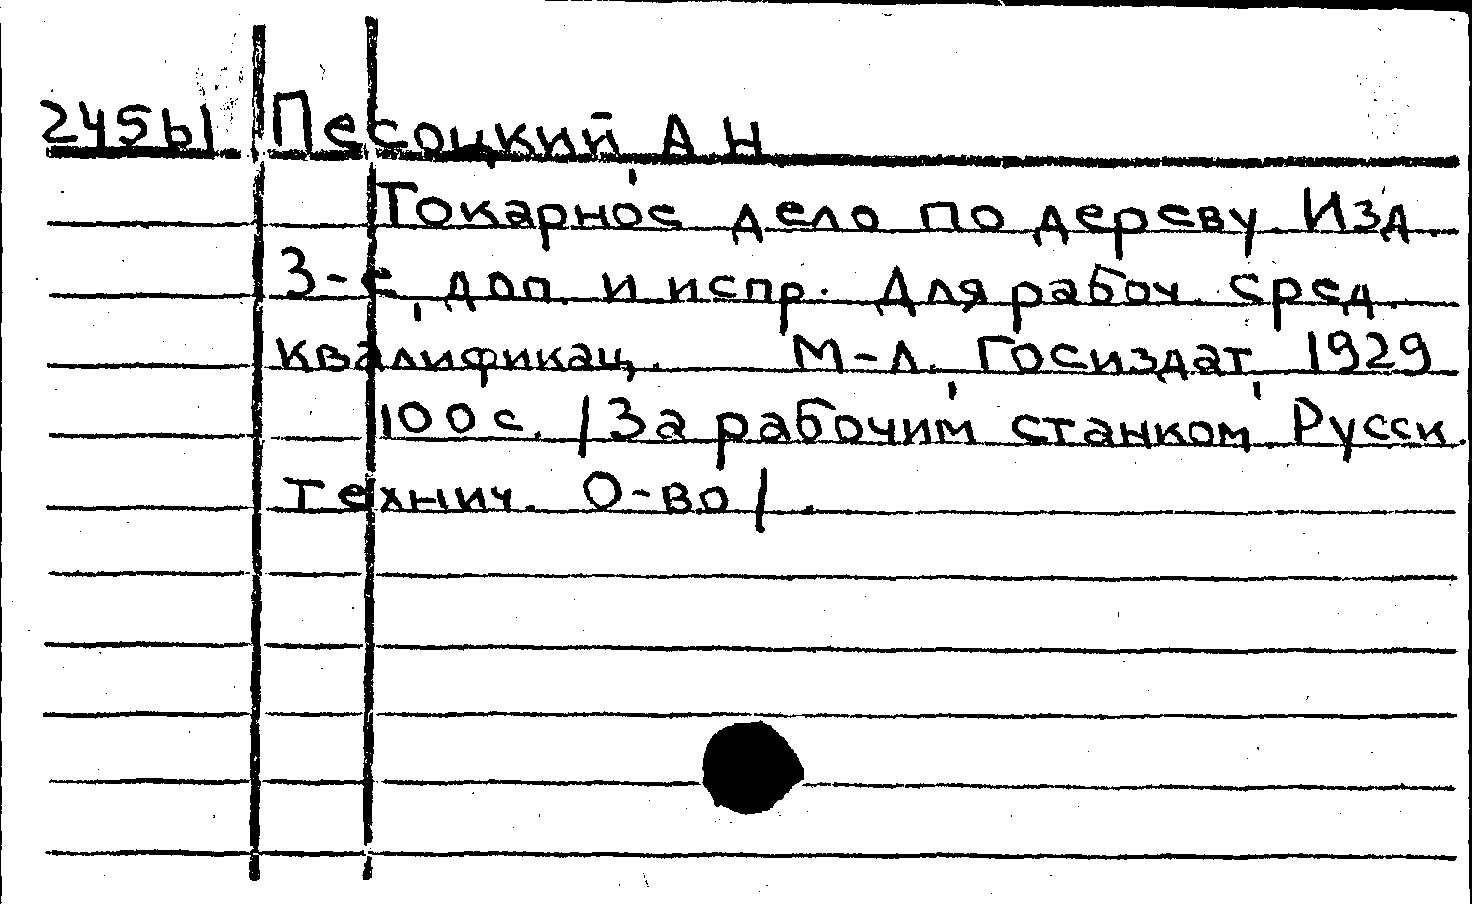 245ы Песоцкий А Н
Токарное дело по дереву. Изд.
3-е, доп. и испр. Для рабоч. сред.
квалификац. М-Л. Госиздат, 1929
100с. /За рабочим станком. Русск.
технич. О-во/.